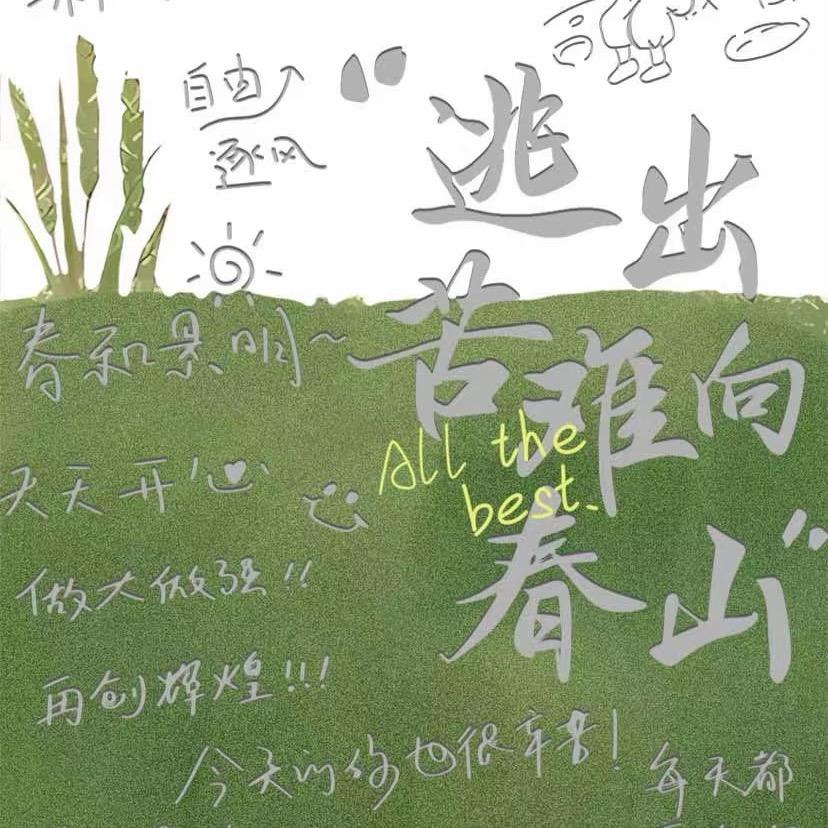 自由
逐风
“逃出
苦难向
春山”
春和景明~
All the
best.
天天开心
做大做强!!
再创辉煌!!!
今天的你也很辛苦!
每天都